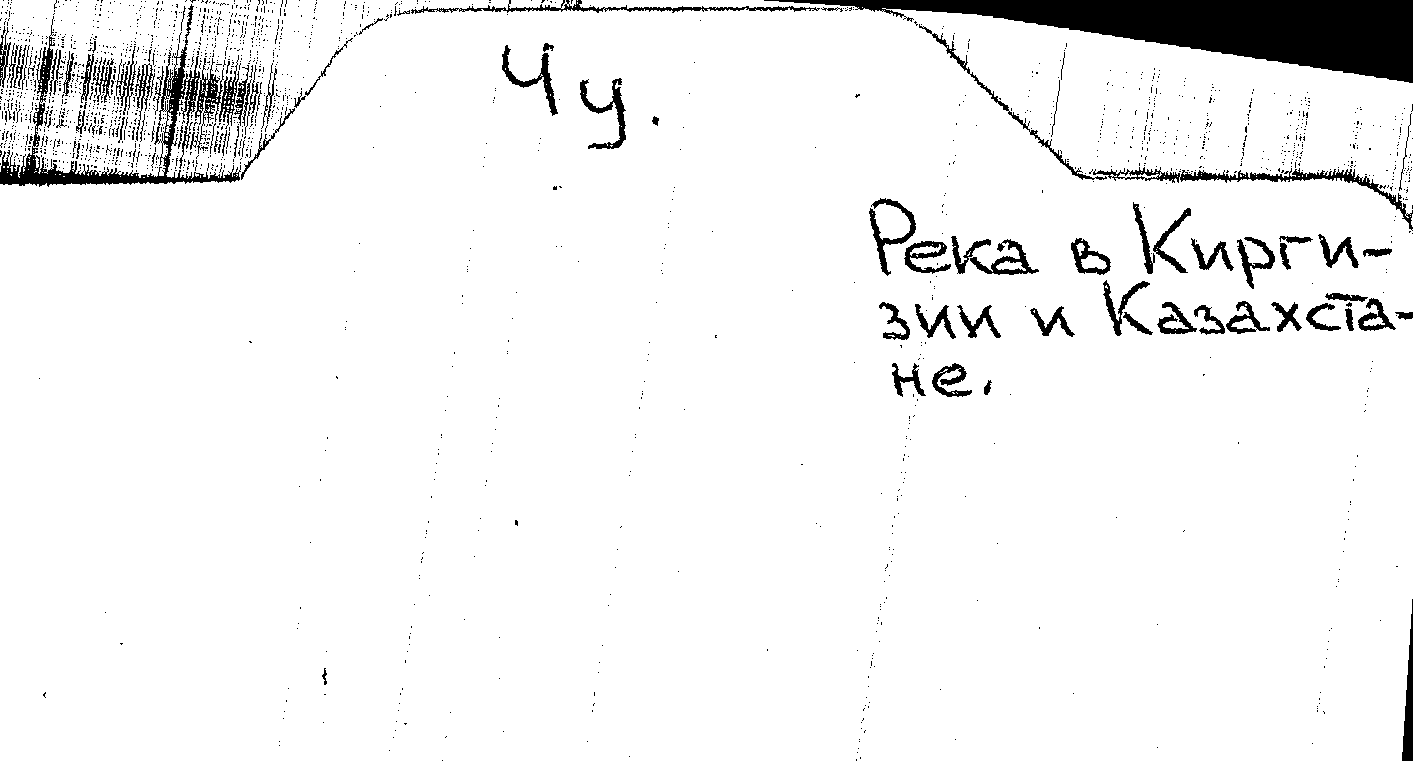 Чу.
Река в Кирги-
зии и Казахста-
не.